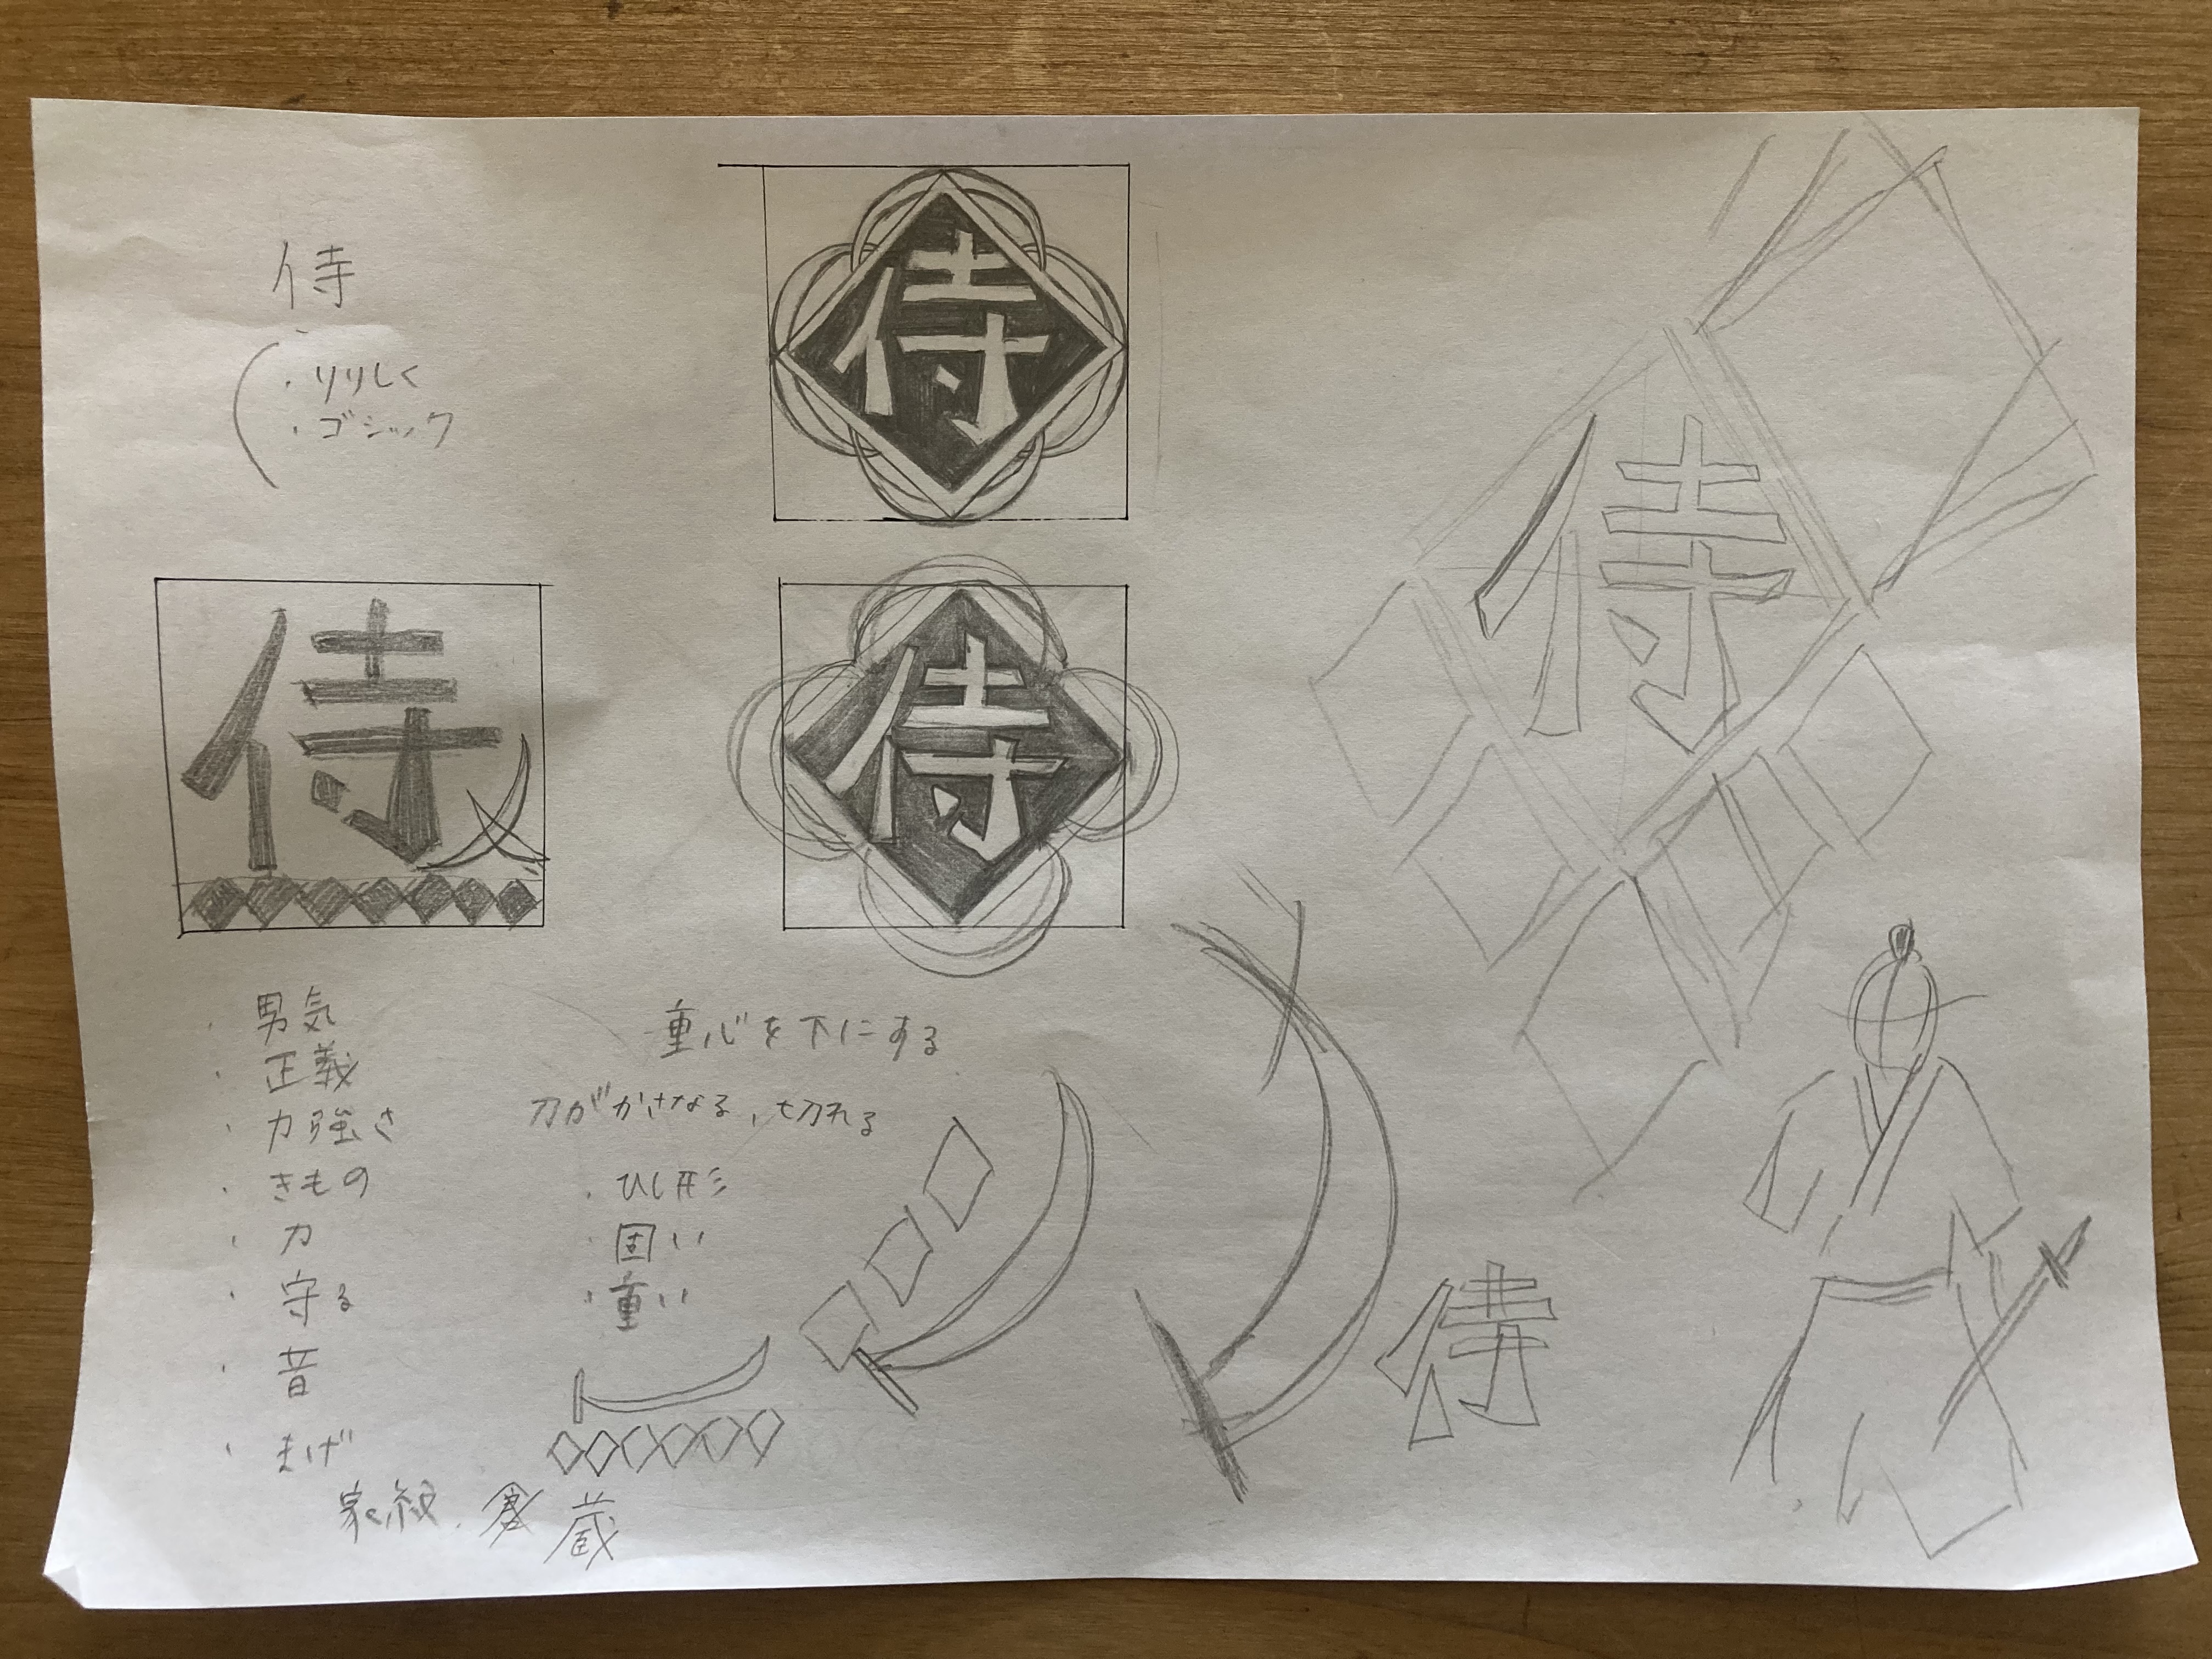 侍
・りりしく
・ゴシック
侍
侍
侍
侍
・男気
・正義
・力強さ
・きもの
・刀
・守る
・昔
・まげ
家紋、蔵
重心を下にする
刀がかさなる、切れる
・ひし形
・固い
・重い
侍